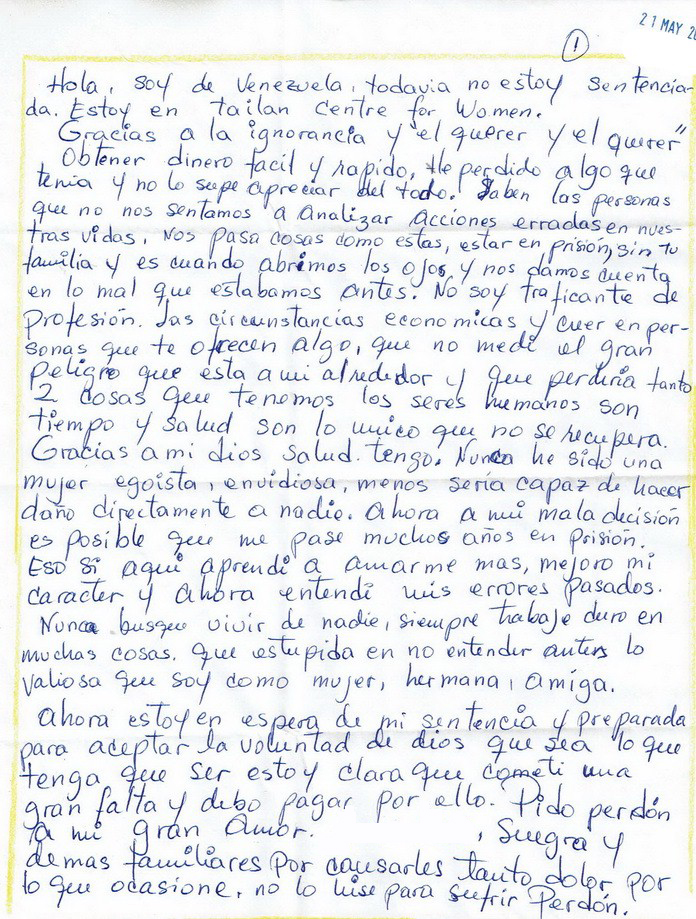 21 MAY 20
1
Hola, soy de Venezuela, todavia no estoy sentencia-
da. Estoy en tailan Centre for Women.
Gracias a la ignorancia y "el querer y el querer"
Obtener dinero facil y rapido, He perdido algo que
tenia y no lo supe apreciar del todo. Saben las personas
que no nos sentamos a analizar acciones erradas en nues-
tras vidas, Nos pasa cosas como estas, estar en prisión, sin tu
familia y es cuando abrimos los ojos, y nos damos cuenta
en lo mal que estabamos antes. No soy traficante de
profesión. Las circunstancias economicas y creer en per-
sonas que te ofrecen algo, que no medi el gran
peligro que esta a mi alrededor y que perdiria tanto
2 cosas que tenemos los seres humanos son
tiempo y salud son lo unico que no se recupera.
Gracias a mi dios salud tengo. Nunca he sido una
mujer egoista, envidiosa, menos sería capaz de hacer
daño directamente a nadie. Ahora a mi mala decisión
es posible que me pase muchos años en prisión.
Eso si aqui aprendi a amarme mas, mejoro mi
caracter y ahora entendi mis errores pasados.
Nunca busque vivir de nadie, siempre trabaje duro en
muchas cosas. que estupida en no entender antes lo
valiosa que soy como mujer, hermana, amiga.
Ahora estoy en espera de mi sentencia y preparada
para aceptar la voluntad de dios que sea lo que
tenga que ser estoy clara que cometi una
gran falta y debo pagar por ello. Pido perdón
a mi gran Amor. , Suegra y
demas familiares por causarles tanto dolor por
lo que ocasione, no lo hise para sufrir Perdón.